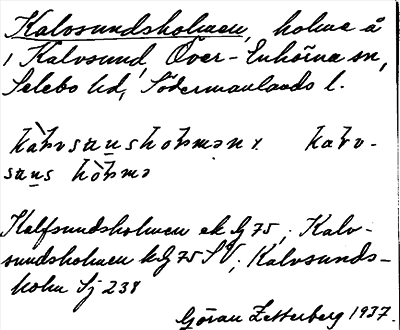 Kalvsundsholmen, holme å
i Kalvsund, Över-Enhörna sn,
Selebo hd, Södermanlands l.
Kalfsundsholmen ek G 75, Kalv-
sundsholmen kG 75 SV; Kalvsunds-
holm Sj 238
Göran Zetterberg 1937.